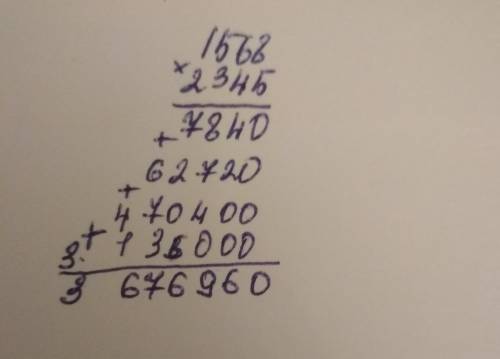 1568
× 2345
7840
+ 62720
+ 470400
+ 3 136000
3 676960